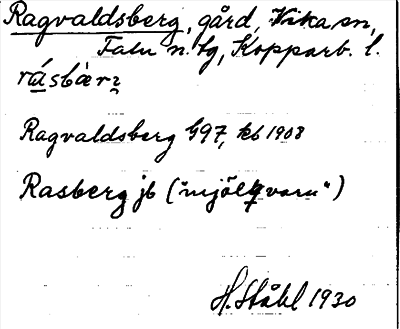 Ragvaldsberg, gård, Vika sn,
Falu n. tg, Kopparb. l.
Ragvaldsberg G97, kb 1908
Rasberg jb ("mjölqvarn")
H. Ståhl 1930